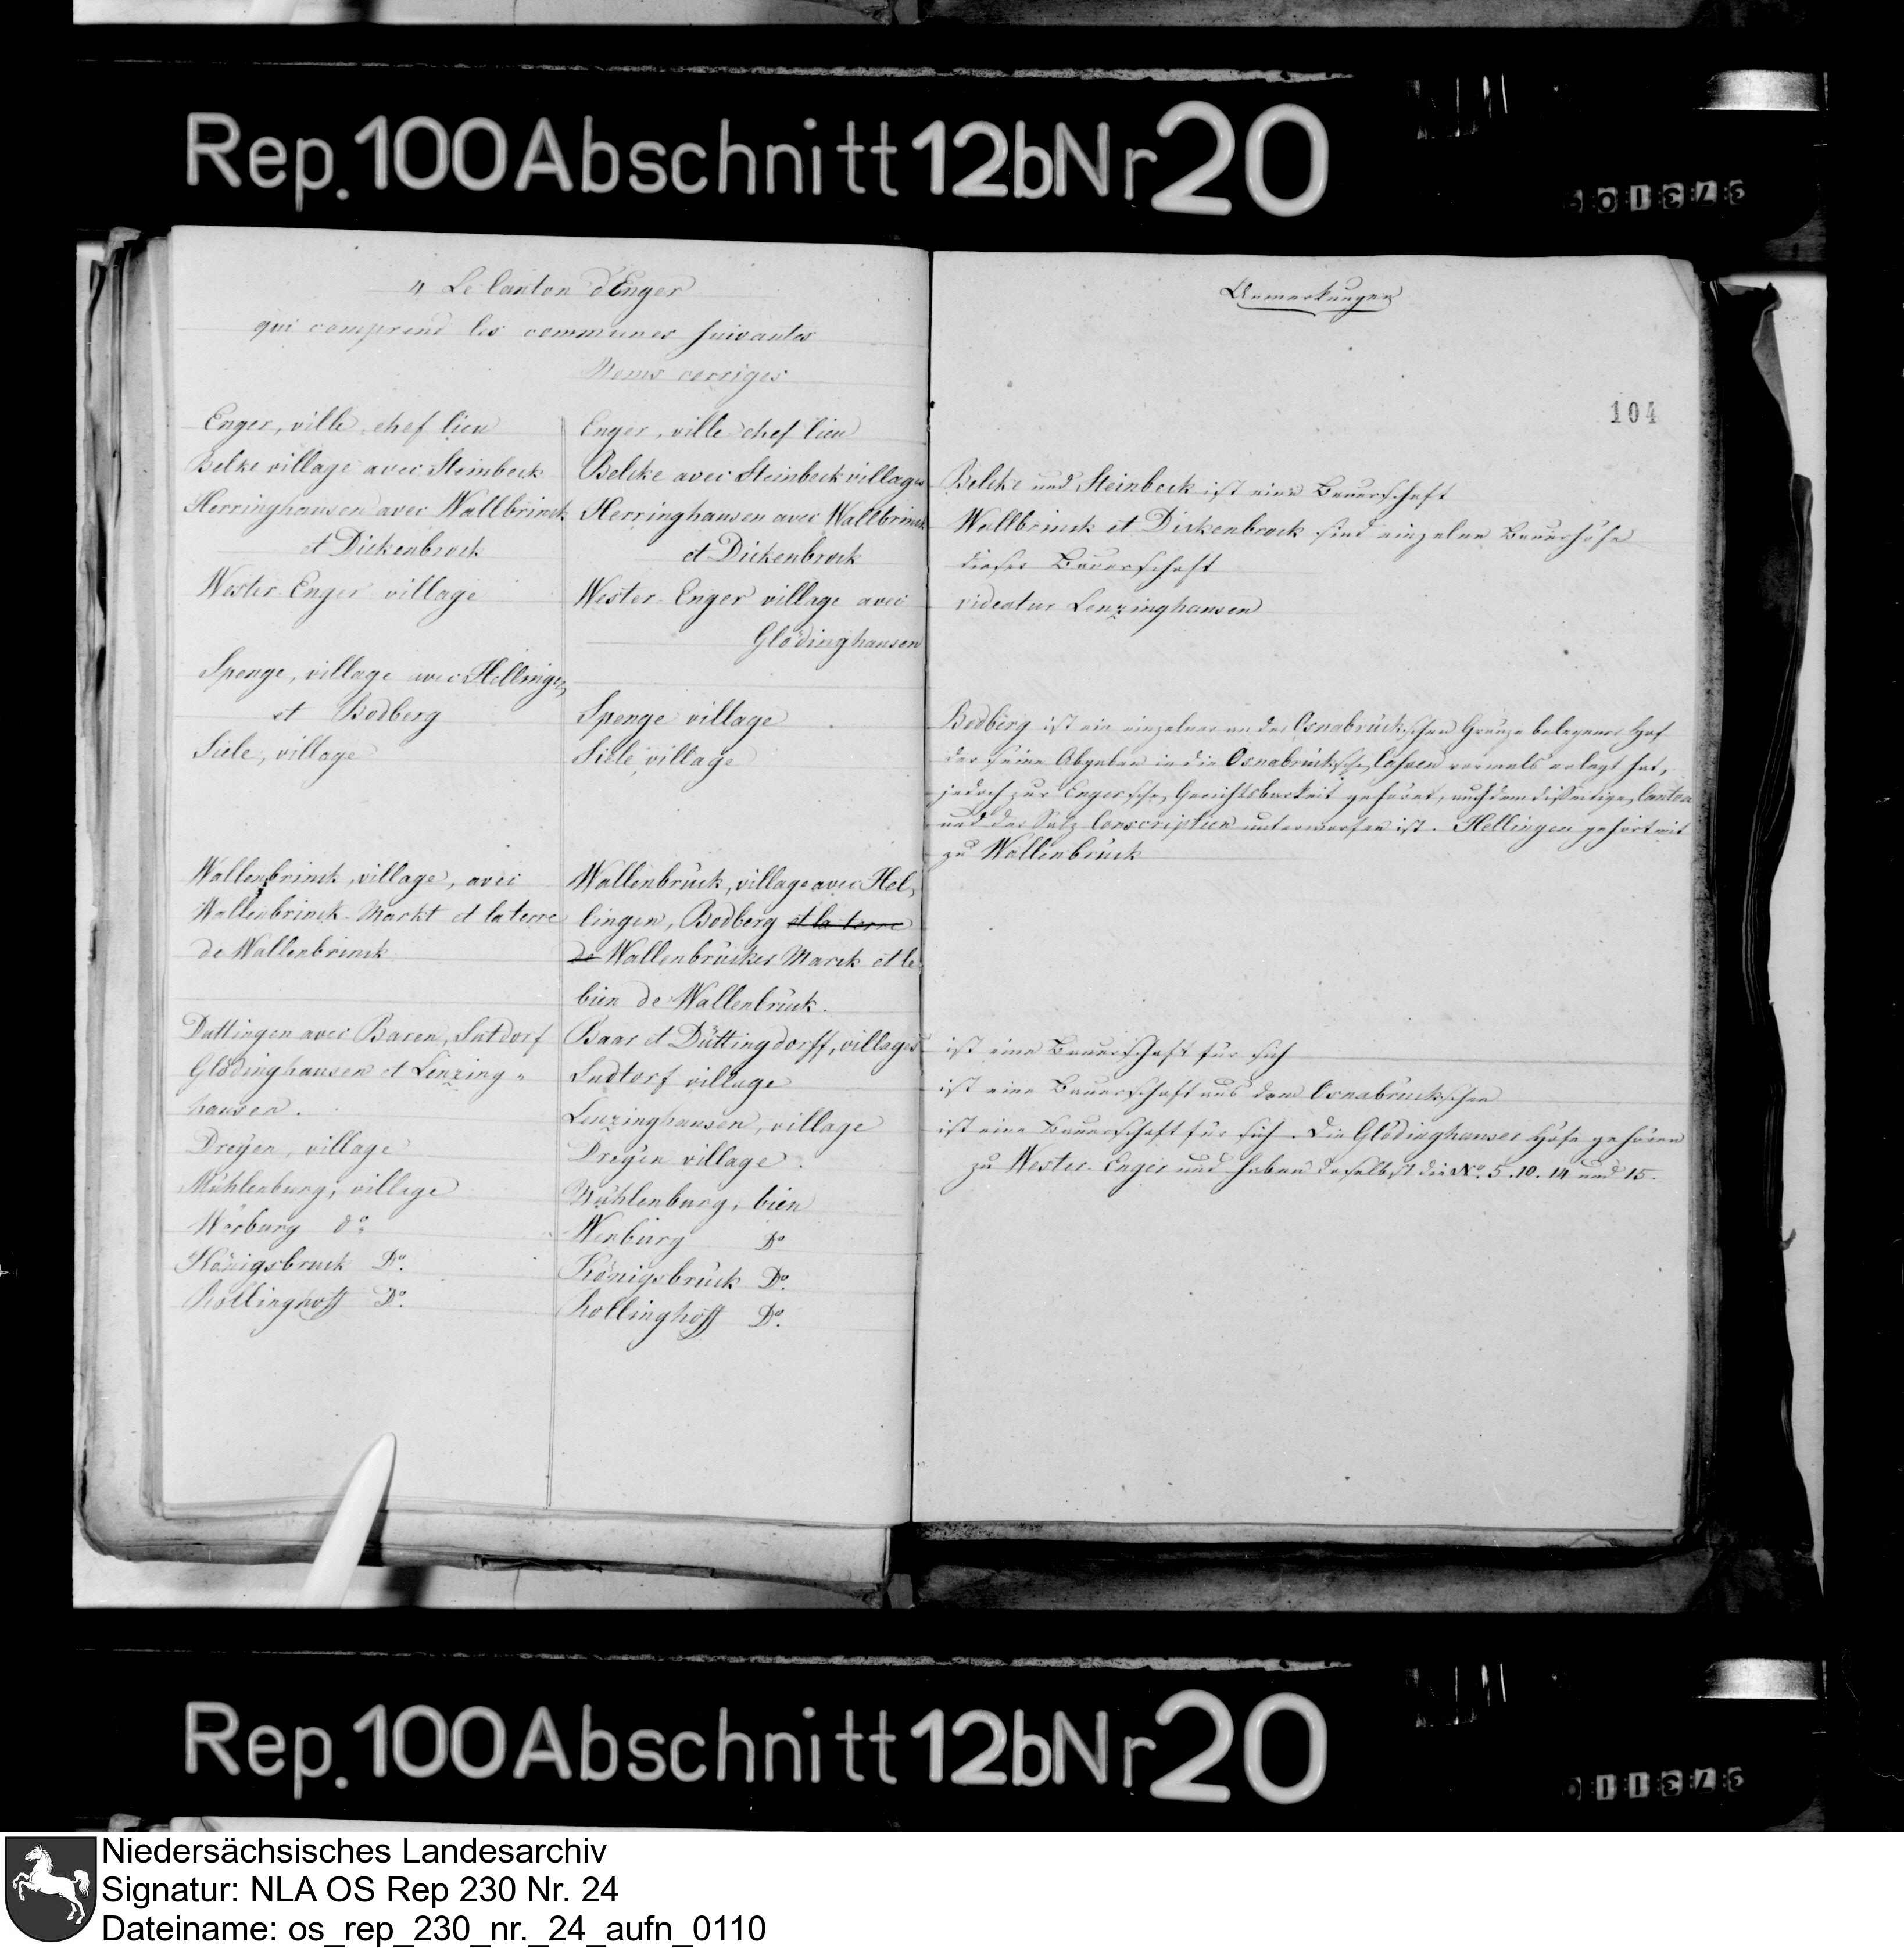 Rep. 100 Abschnitt 12b Nr 20
Le Canton d'Enger
qui comprend les communes suivantes
Noms corrigés
Enger, ville chef lieu
Belke village avec Steinbeck
Herringhausen avec Wallbrinck
et Dickenbrock
Wester-Enger village
Spenge, village avec Hellingen
et Bodberg
Siele, village
Wallenbrinck, village, avec
Wallenbrinck-Markt et la terre
de Wallenbrinck
Duttingen avec Baren, Sutdorf
Glödinghausen et Lenzing-
hausen.
Dreyen, village
Mühlenburg, village
Werburg do
Königsbruck Do.
Böllinghoff Do.
Enger, ville chef lieu
Belcke avec Steinbeck villages
Herringhausen avec Wallbrinck
et Dickenbrock
Wester-Enger village avec
Glödinghausen
Spenge village
Siele village
Wallenbrück, village avec Hel-
lingen, Bodberg et la terre
de Wallenbrücker Marck et le
bien de Wallenbrück.
Baar et Düttingdorff, villages
Sudtorf village
Lenzinghausen, village
Dreyen village.
Mühlenburg, bien
Werburg Do
Königsbrück Do.
Bollinghoff Do.
Anmerkungen
104
Belcke und Steinbeck ist eine Bauerschaft
Wallbrinck et Dickenbrock sind einzelne Bauerhöfe
dieser Bauerschaft
videatur Lenzinghausen
Bodberg ist ein einzelner an der Osnabrückschen Grenze belegener Hof
der seine Abgaben in die Osnabrücksche Cassen vormals erlegt hat,
jedoch zur Engerschen Gerichtsbarkeit gehöret, auch dem disseitigen Canton
und der Salz Conscription unterworfen ist. Hellingen gehört mit
zu Wallenbrück
ist eine Bauerschaft für sich
ist eine Bauerschaft aus dem Osnabrückschen
ist eine Bauerschaft für sich. Die Glödinghauser Höfe gehören
zu Wester-Enger und haben daselbst die No. 5. 10. 14 und 15.
Rep. 100 Abschnitt 12b Nr 20
Niedersächsisches Landesarchiv
Signatur: NLA OS Rep 230 Nr. 24
Dateiname: os_rep_230_nr._24_aufn_0110